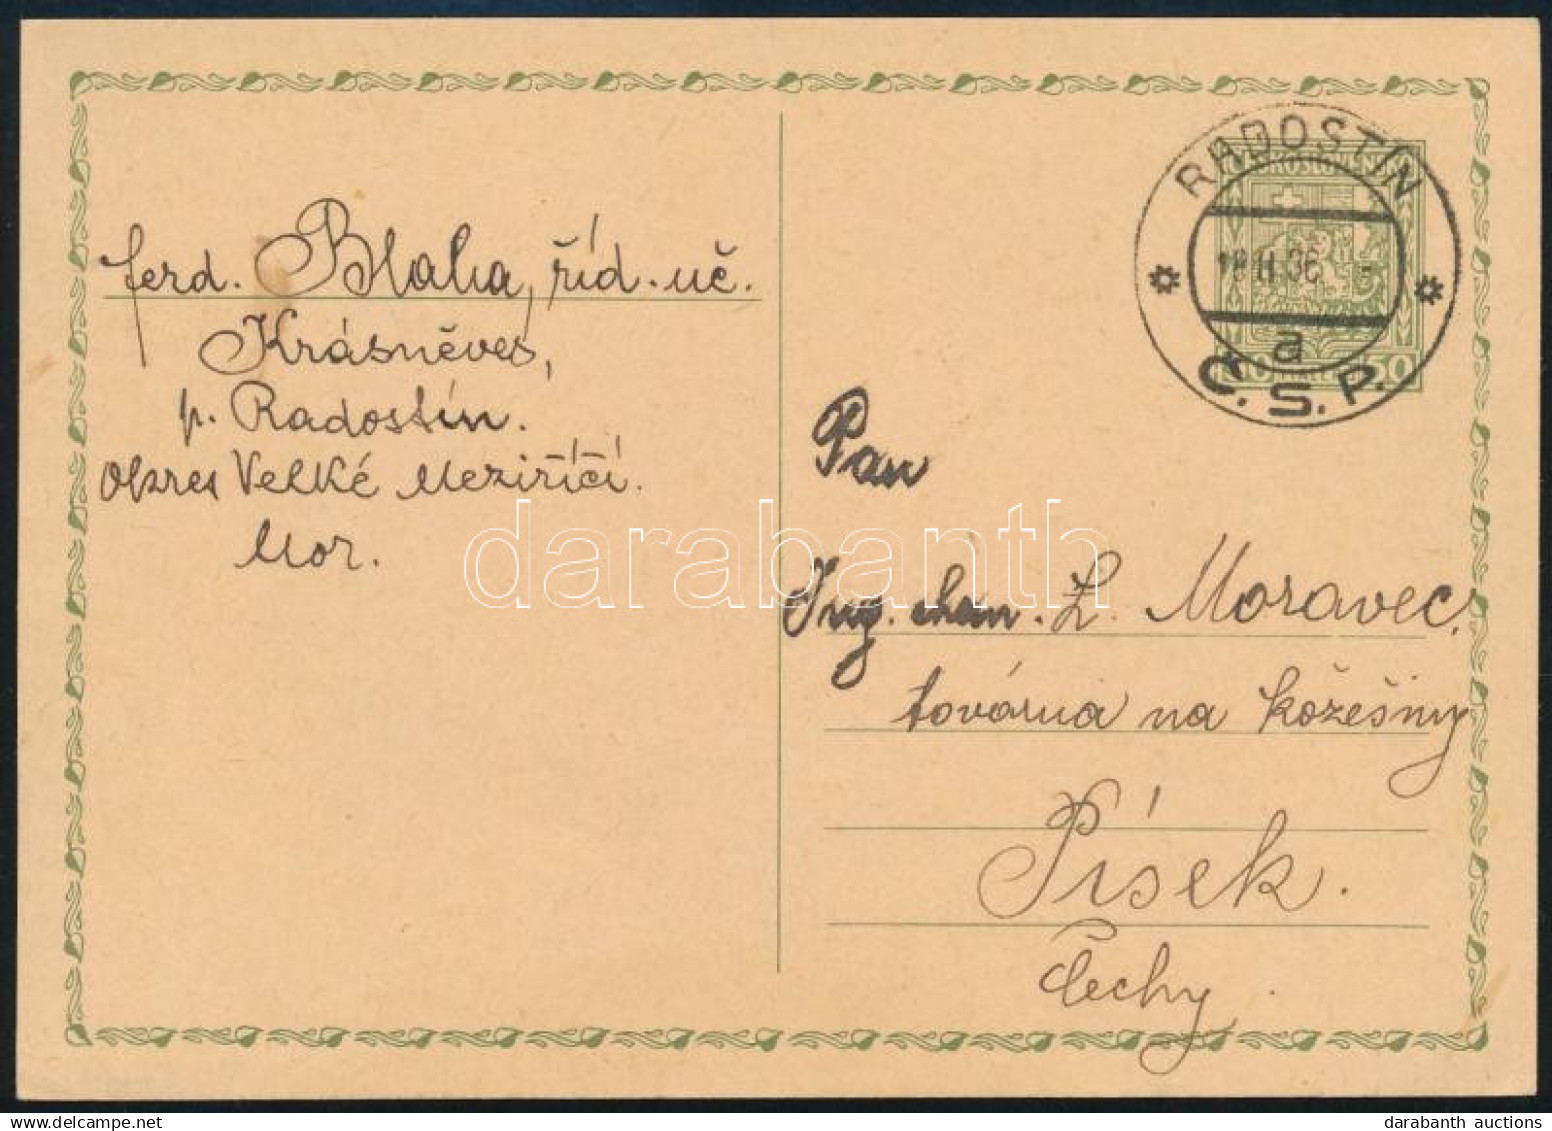 ferd. Blaha, říd. uč.
Krásněves,
p. Radostín.
okres Velké Meziříčí.
Mor.
RADOSTÍN
18.II.36
a
Č.S.P.
50
Pan
Ing. chem. Z. Moravec,
továrna na kožešiny
Písek.
Čechy.
darabanth
darabanth auctions